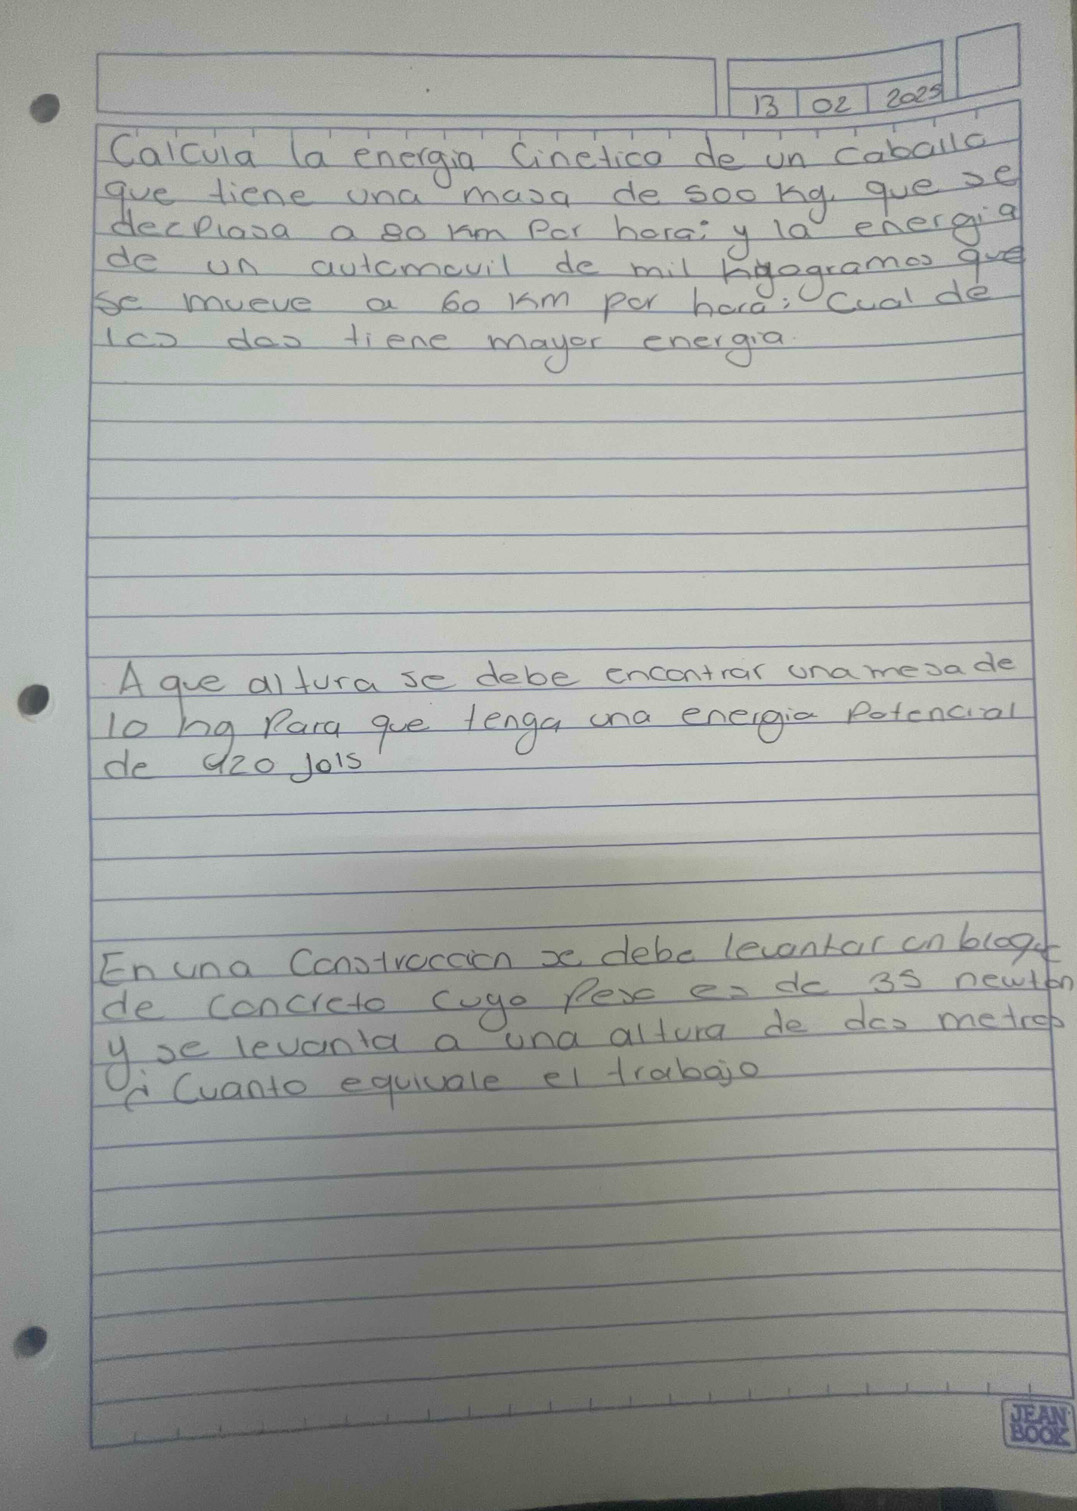 13 02 2025
Calcula la energia Cinetica de un caballo
que tiene una masa de 500 kg. que se
decplasa a 80 km Por hora; y la energia
de un automovil de mil kgogramos que
se mueve a 60 km por hora; Cual de
los dos tiene mayor energia.
A que altura se debe encontrar una mesa de
10 kg Para que tenga una energia Potencial
de 920 Jols
En una Construccion se debe levantar un bloque
de concreto cuyo Peso es de 35 newton
y se levanta a una altura de dos metros
¿ Cuanto equivale el trabajo
JEAN
BOOK